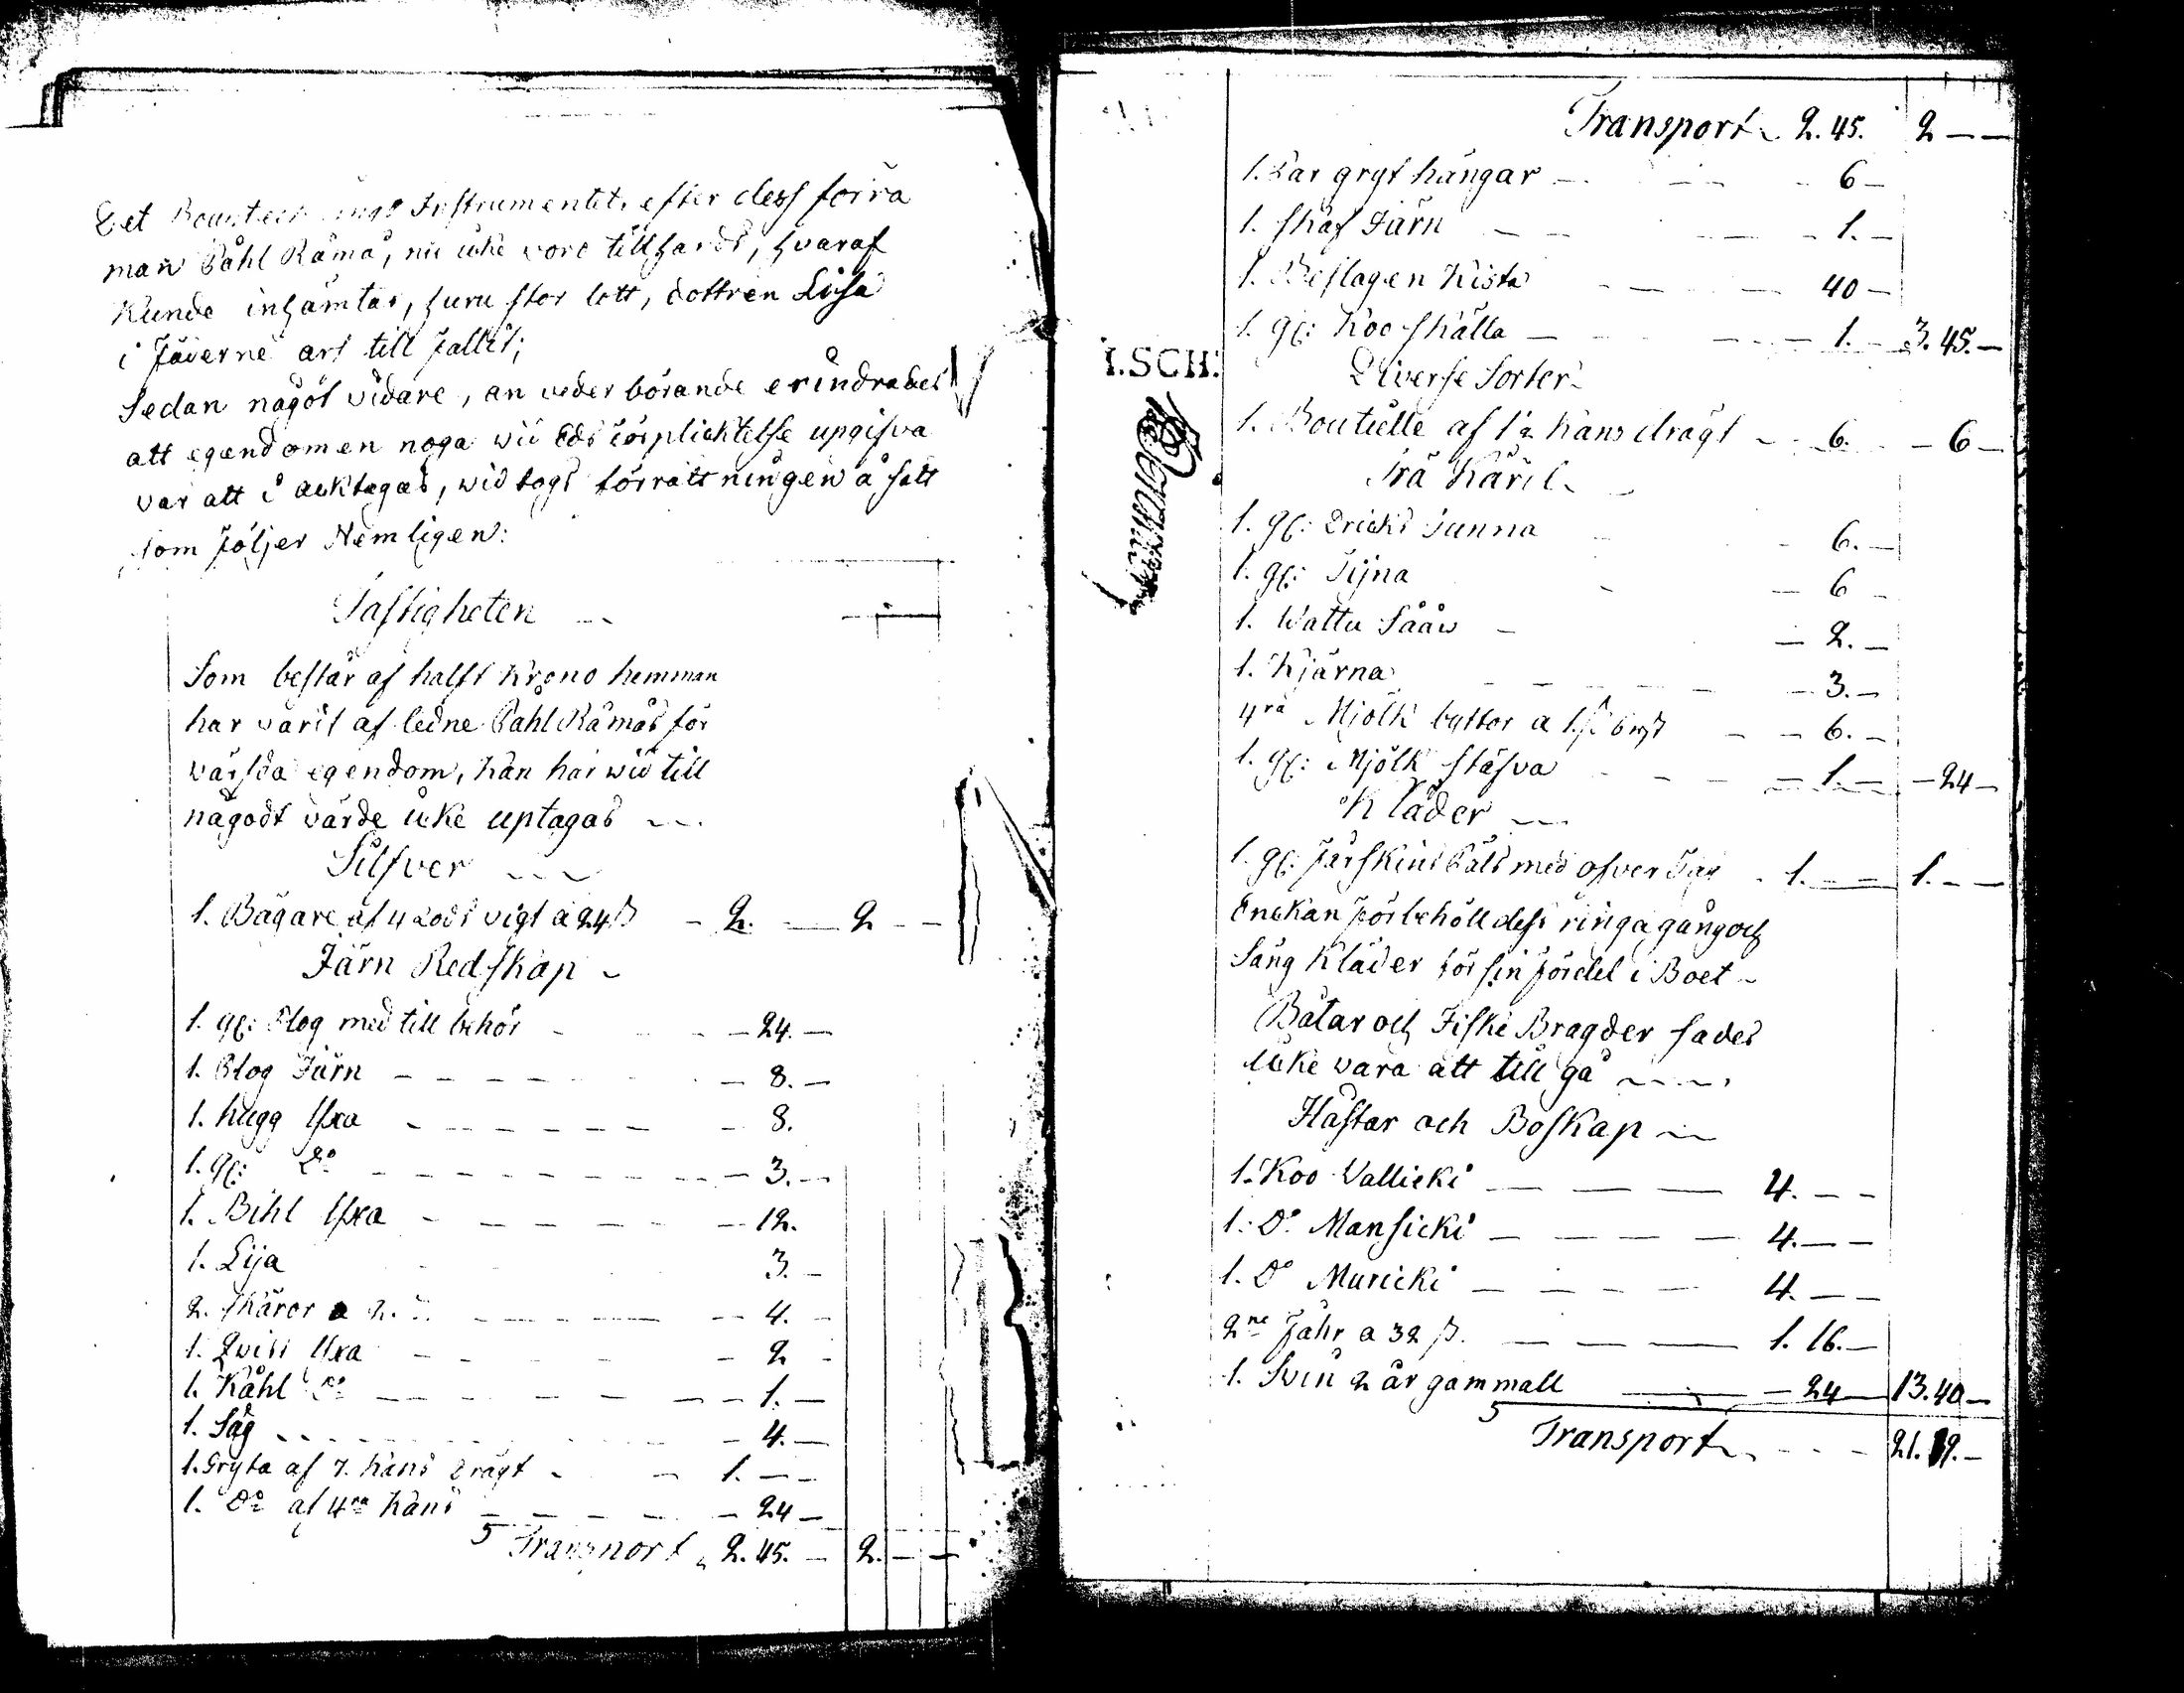 Det Instrumentet, efter dess förra
man Påhl Råmå, nu icke vore tillhands, hvaraf
Kunde inhämtas, huru stor lott, dottren Lisa
i Fäderne arf till fallit;
Sedan någôt vidare, än vederbörande erindrades
att egendomen noga wid Eds förplicktelse upgifva
var att i acktagas, widtogs förrättningen å sätt
som följer Nemligen:
Fastigheten
Som består af halft Krono hemman
har varit af ledne Påhl Råmås för
värfda egendom, kan här wid till
någodt värde icke uptagas
Silfver
1. Bägare af 4 Lods vigt a 24 ß - 2. — 2 - -
Järn Redskap
1. gl: Plog med till behör - 24. -
1. Plog Järn - 8. -
1. hugg Yxa - 8.
1. gl: Do - 3. -
1. Bihl Yxa - 12.
1. Lija 3. -
2. skäror a 2. - 4. -
1. Qvist Yxa - 2 -
1. Kåhl Do - 1. -
1. Såg - 4. -
1. Gryta af 7. Kans drägt - 1. - -
1. Do af 4ra Kans - 24 -
5 Transport 2. 45. - 2. - -
Transport 2. 45. 2 - -
1. Par gryt hängar - 6 -
1. skaf Järn - 1. -
1. Beslagen Kista 40 -
1. gl: Koo skälla - 1. - 3. 45. -
Diverse Sorter
1. Boutielle af 1½ Kans drägt - 6. - 6 -
Trä Käril
1. gl: Dricks Tunna - 6. -
1. gl: Tijna - 6 -
1. Wattu Sååw - 2. -
1. Kjärna - 3. -
4ra Mjölk byttor a 1 ß 6 rst - 6. -
1. gl: Mjölk stäfva - 1. - - 24 -
Kläder
1. gl: fårskins Päls med öfver Tyg 1. - - 1. - -
Enckan förbehöll dess ringa gång och
Säng Kläder för sin fördel i Boet
Båtar och Fiske Bragder sades
icke vara att till gå
Hästar och Boskap
1. Koo Vallicki 4. - -
1. Do Mansicki 4. - -
1. Do Muricki 4. - -
2ne Fåhr a 32 ß. 1. 16. -
1. Svin 2 år gammalt - 24 - 13. 40 -
5 Transport 21. 19. -
I.SCH: